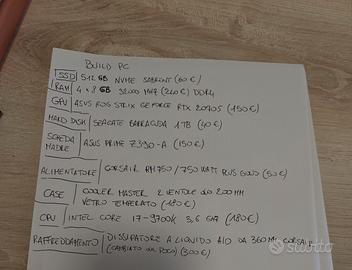 BUILD PC
SSD 512 GB NVME SABRENT (60 €)
RAM 4 x 8 GB 32000 MHZ (240 €) DDR4
GPU ASUS ROG STRIX GEFORCE RTX 2070S (150 €)
HARD DISK SEAGATE BARRACUDA 1TB (40 €)
SCHEDA MADRE ASUS PRIME Z390-A (150 €)
ALIMENTATORE CORSAIR RM750 / 750 WATT PLUS GOLD (50 €)
CASE COOLER MASTER 2 VENTOLE DA 200MM
VETRO TEMPERATO (180 €)
CPU INTEL CORE I7-9700K 3,6 GHZ (180 €)
RAFFREDDAMENTO DISSIPATORE A LIQUIDO AIO DA 360 MM CORSAIR
(CAMBIATO DA POCO) (300 €)
subito